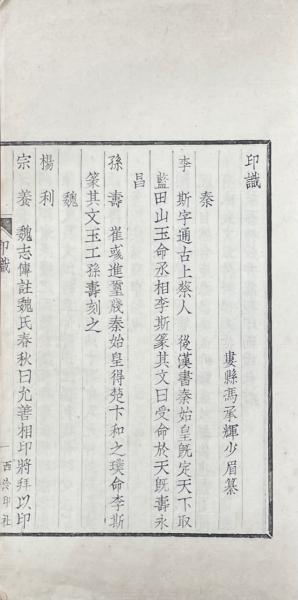 印識
婁縣馮承輝少眉纂
秦
李　斯字通古上蔡人　後漢書秦始皇既定天下取
藍田山玉命丞相李斯篆其文曰受命於天既壽永
昌
孫　壽　崔彧進璽牋秦始皇得楚卞和之璞命李斯
篆其文玉工孫壽刻之
魏
楊　利
宗　養　魏志傳註魏氏春秋曰允善相印將拜以印
印識
一
西泠印社